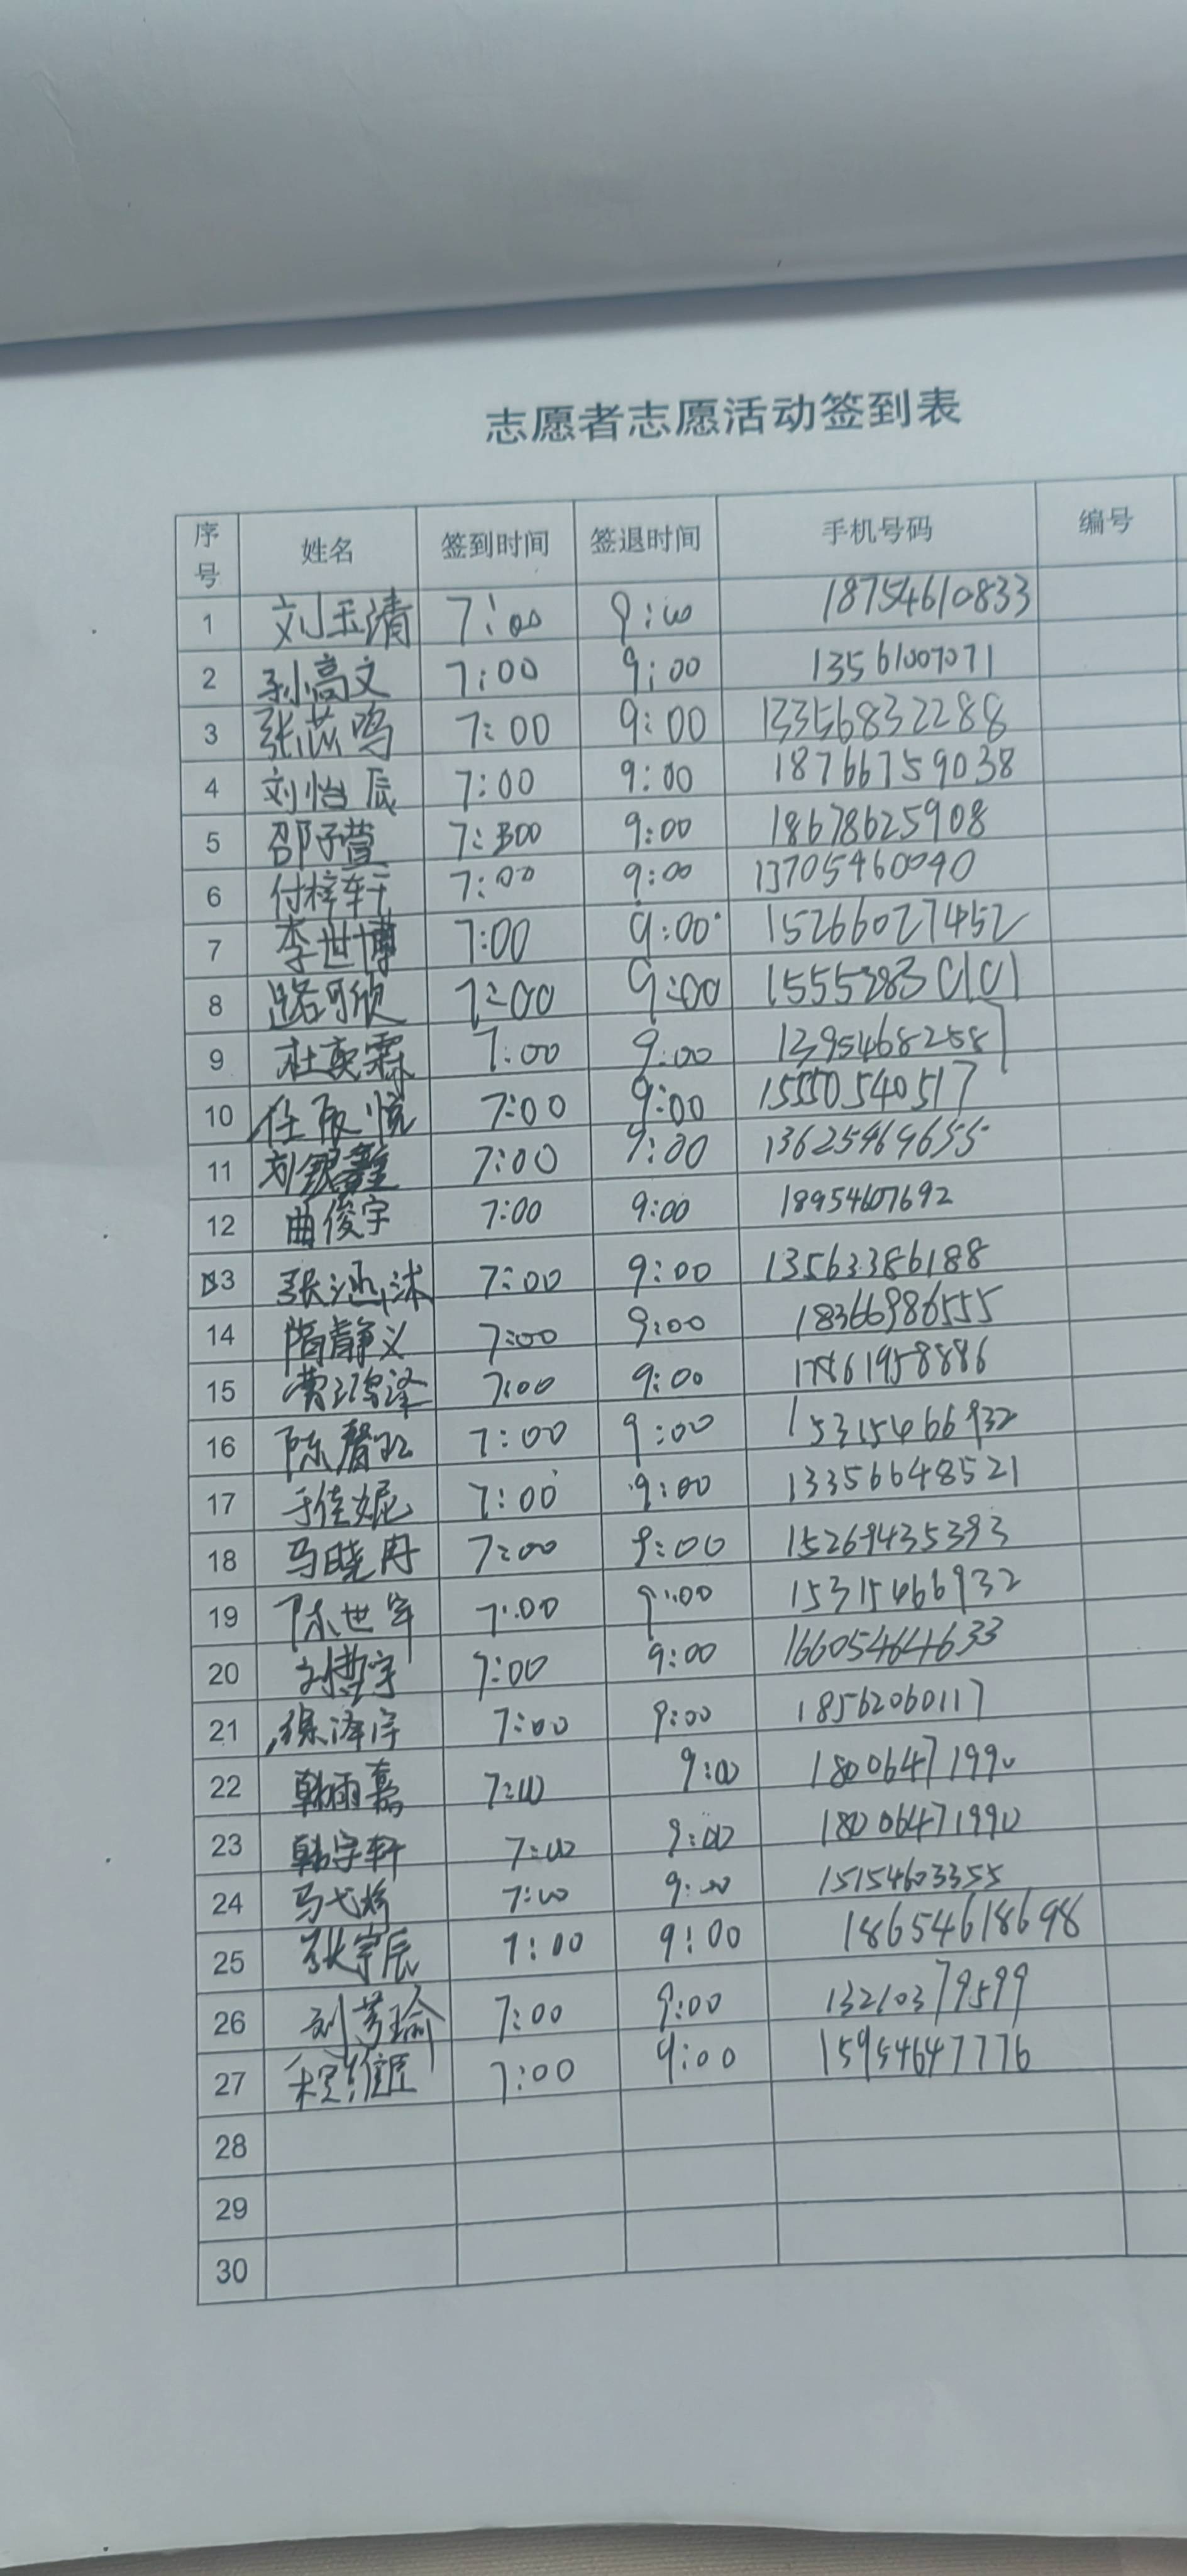 志愿者志愿活动签到表
序号 姓名 签到时间 签退时间 手机号码 编号
1 刘玉清 7:00 9:00 18754610833
2 孙高文 7:00 9:00 13561007071
3 张芯鸣 7:00 9:00 13356832288
4 刘怡辰 7:00 9:00 18766759038
5 邵子萱 7:300 9:00 18678625908
6 付梓轩 7:00 9:00 13705460090
7 李世博 7:00 9:00 15266027452
8 路可欣 7:00 9:00 15553830101
9 杜奕霖 7:00 9:00 13954682587
10 任 悦 7:00 9:00 15550540517
11 刘 7:00 9:00 13625469655
12 曲俊宇 7:00 9:00 18954607692
13 张涵沭 7:00 9:00 13563386188
14 隋静义 7:00 9:00 18366986555
15 泽 7:00 9:00 17861958886
16 陈馨 7:00 9:00 15315466932
17 于佳妮 7:00 9:00 13356648521
18 马晓冉 7:00 9:00 15269435393
19 陈世军 7:00 9:00 15315466932
20 刘哲宇 7:00 9:00 16605464633
21 徐泽宇 7:00 9:00 18562060117
22 韩雨嘉 7:00 9:00 18006471990
23 韩宇轩 7:00 9:00 18006471990
24 马 7:00 9:00 15154603355
25 张宇辰 7:00 9:00 18654618698
26 刘芳瑜 7:00 9:00 13210379599
27 程维臣 7:00 9:00 15954647776
28
29
30